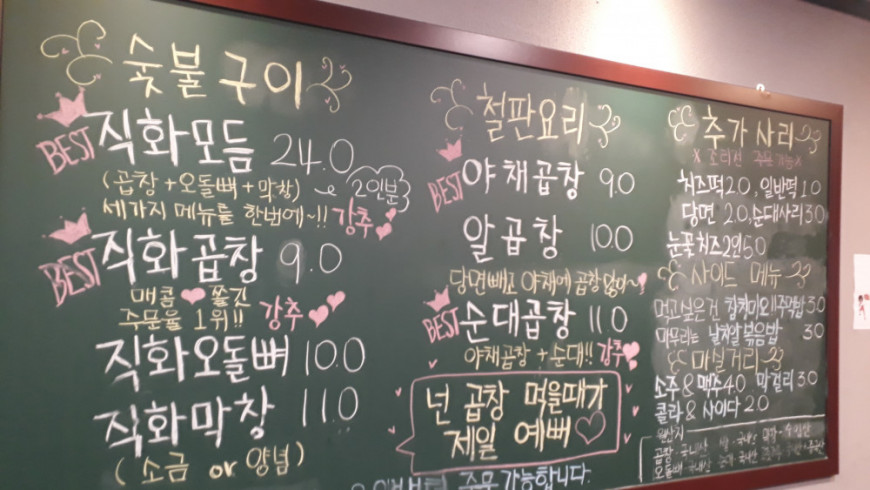 숯불구이
BEST 직화모듬 24.0
(곱창+오돌뼈+막창) 2인분
세가지 메뉴를 한번에~!! 강추
BEST 직화곱창 9.0
매콤 쫄깃
주문율 1위!! 강추
직화오돌뼈 10.0
직화막창 11.0
(소금 or 양념)
철판요리
BEST 야채곱창 9.0
알곱창 10.0
당면빼고 야채에 곱창많이~
BEST 순대곱창 11.0
야채곱창+순대!! 강추
넌 곱창 먹을때가
제일 예뻐
주문가능합니다.
추가사리
치즈떡 2.0, 일반떡 1.0
당면 2.0, 순대사리 3.0
눈꽃치즈2인 5.0
사이드 메뉴
먹고싶은건 참치마요!!주먹밥 3.0
마무리는 날치알볶음밥 3.0
마실거리
소주&맥주 4.0 막걸리 3.0
콜라&사이다 2.0
원산지